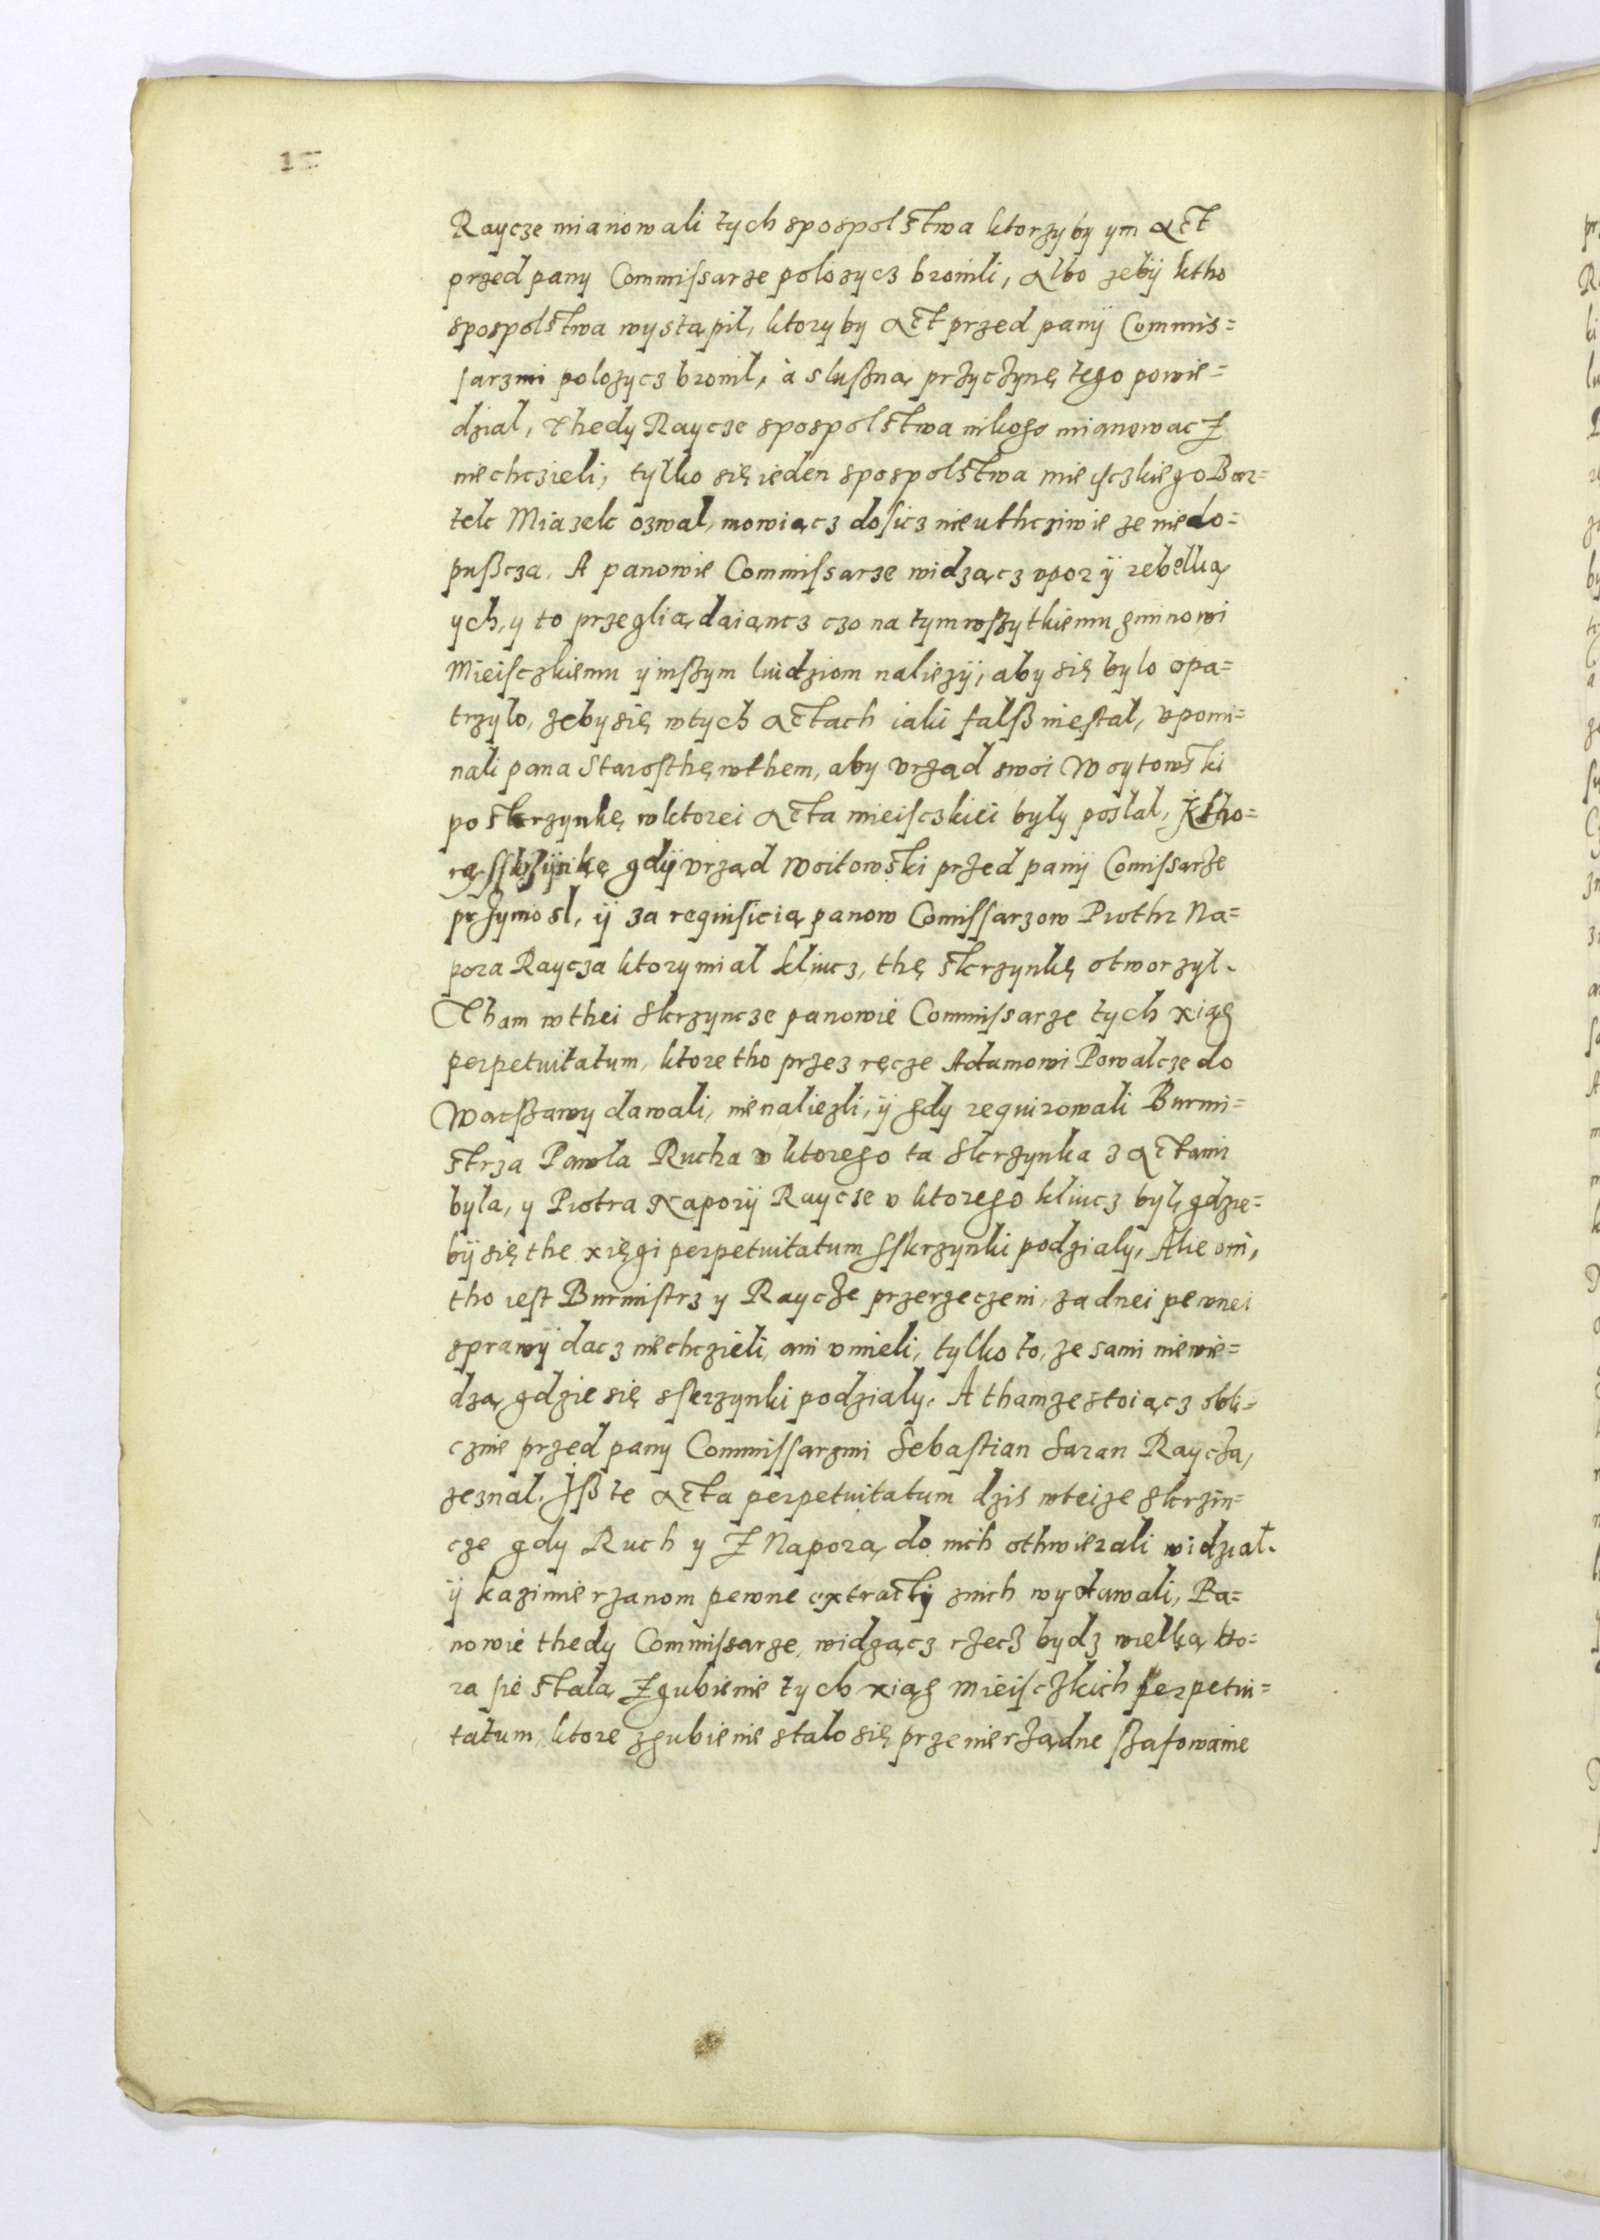 Raycze mianowali tych spospolstwa ktorzyby ym Act
przed pany Commissarze polozycz bronili, Albo zebÿ ktho
spospolstwa wystąpil, ktoryby Act przed panÿ Commis=
sarzmi polozycz bronil, à slußną przyczynę tego powie=
dzial, Thedy Raycze spospolstwa nikogo mianowacz
niechczieli, tylko się ieden spospolstwa mieisczkiego Bar=
tek Miazek ozwal, mowiącz dosicz nieuthcziwie ze niedo=
pußcza. A panowie Commissarze widzącz vpor ÿ rebellią
ych, y to przegliądaiancz czo na tym wszytkiemu gminowi
Mieisczkiemu y inszym ludziom naliezÿ, aby się bylo opa=
trzylo, zeby się wtych Actach iaki falß niestal, vpomi=
nali pana Starosthę wthem, aby vrząd swoi Woytowski
po skrzynkę wktorei Acta mieisczkiei byly poslal, Ktho=
rą sskrzÿnkę gdÿ vrząd Woitowski przed panÿ Comissarze
przyniosl, ÿ za requisicią panow Comissarzow Piothr Na=
pora Raycza ktory mial kliucz, thę skrzynkę otworzyl.
Tham wthei skrzyncze panowie Commissarze tych xiąg
perpetuitatum, ktore tho przez ręcze Adamowi Powalcze do
Warßawy dawali, nienaliezli, ÿ gdy requirowali Burmi=
strza Pawla Rucha v ktorego ta skrzynka z Actami
byla, y Piotra Naporÿ Raycze v ktorego kliucz byl, gdzie=
bÿ się the xięgi perpetuitatum sskrzynki podzialy, Ale oni,
tho iest Burmistrz y Raycze przerzeczeni, zadnei pewnei
sprawÿ dacz niechczieli, ani vmieli, tylko to, ze sami niewie=
dzą gdzie się sskrzynki podzialy. A thamze stoiącz obli=
cznie przed pany Commissarzmi Sebastian Saran Raycza,
zeznal. Iß te Acta perpetuitatum dzis wteize skrzin=
cze gdy Ruch y Z Naporą do nich othwierali widzial.
ÿ kazimierzanom pewne extractÿ znich wydawali, Pa=
nowie thedy Commissarze, widzącz rzecz bydz wielką kto=
ra sie stala Zgubienie tych xiąg Mieisczkich perpetui=
tatum, ktore zgubienie stalo się prze nierządne szafowanie